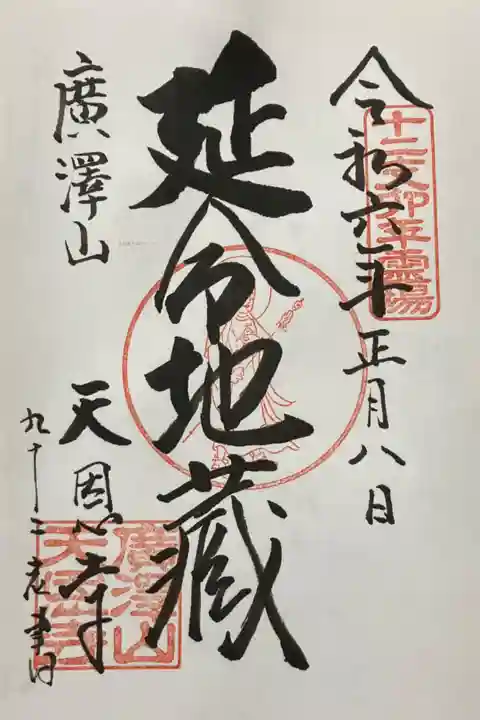 十二支卯年霊場
令和六年正月八日
延命地蔵
廣澤山
天恩寺
九十二老書
廣澤山
天恩寺